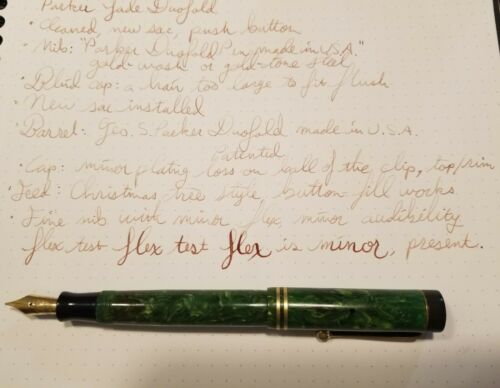 Parker Jade Duofold
• Cleaned, new sac, push button
• Nib: "Parker Duofold Pen made in U.S.A."
gold-wash or gold-tone steel.
• Blind cap: a hair too large to fit flush
• New sac installed
• Barrel: Geo. S. Parker Duofold made in U.S.A.
Patented
• Cap: minor plating loss on ball of the clip, top/rim
• Feed: Christmas tree style, button-fill works
• Fine nib with minor flex, minor audibility
flex test flex test flex is minor, present.